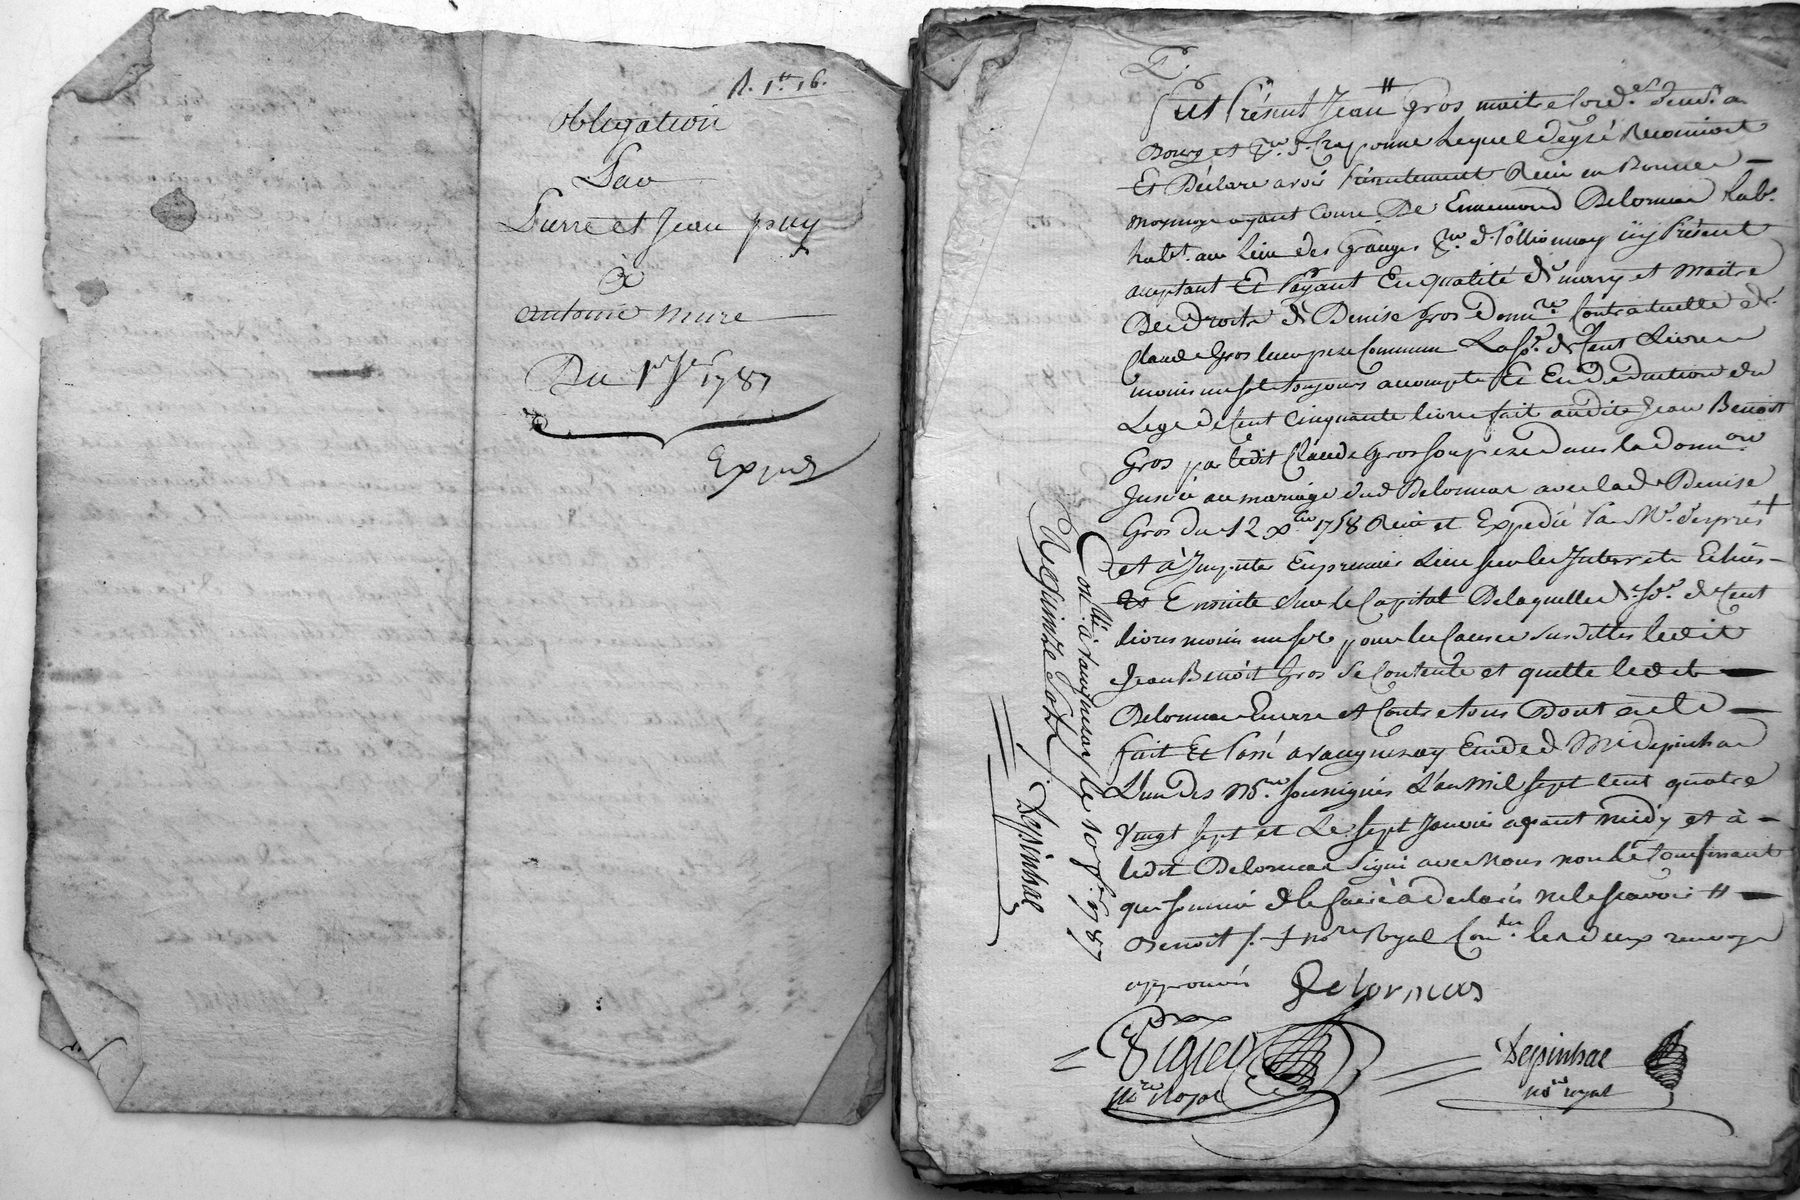 R. 1tt 16.
obligation
Par
Pierre et Jean puy
à
antoine mure
Du 1er Jer 1787
Exped
Fut Présent Jean # Gros maitre Cord.
Bourg et St. Craponne Lequel de gré Reconnoit
Et Déclare avoir présentement Reçu en Bonne
monnoye ayant Cours De Ennemond Delormas hab.
habt. au lieu des Granges de Pollionnay icy Présent
acceptant Et Payant En qualité de mary et maitre
Des droits de Denise Gros donre. Contractuelle de
Claude Gros leur pere Commun La se. de Cent Livres
moins un sol toujours accompte Et En Deduction du
Legs de Cent Cinquante livres fait audit Jean Benoit
Gros par ledit Claude Gros son pere dans la donaon
Inserée au mariage dud Delormas avec lad Denise
Gros du 12 xbre 1758 Reçu et Expedié Par Me. Despres +
et à Imputer En premier Lieu sur les Interrets Echus
Et Ensuite sur le Capital De laquelle de. se. de Cent
livres moins un sol pour les Causes susdittes ledit
Jean Benoit Gros se Contente et quitte ledit
Delormas Encore et Contre tous Dont acte
fait Et Passé a vaugneray Etude de Me Depinhac
L'un des Nores. soussignés L'an mil sept cent quatre
vingt sept et Le sept Janvier avant midy et à
ledit Delormas Signé avec Nous non le Confessant
que sommé de le faire à declaré ne le scavoir #
Benoit /. + nore Royal les deux renvoys
approuvés
Delormas
nore Royal
Depinhac
nore royal
Conllé à vaugneray le 10 Jer 1787
Reçu quinze sols /. Depinhac